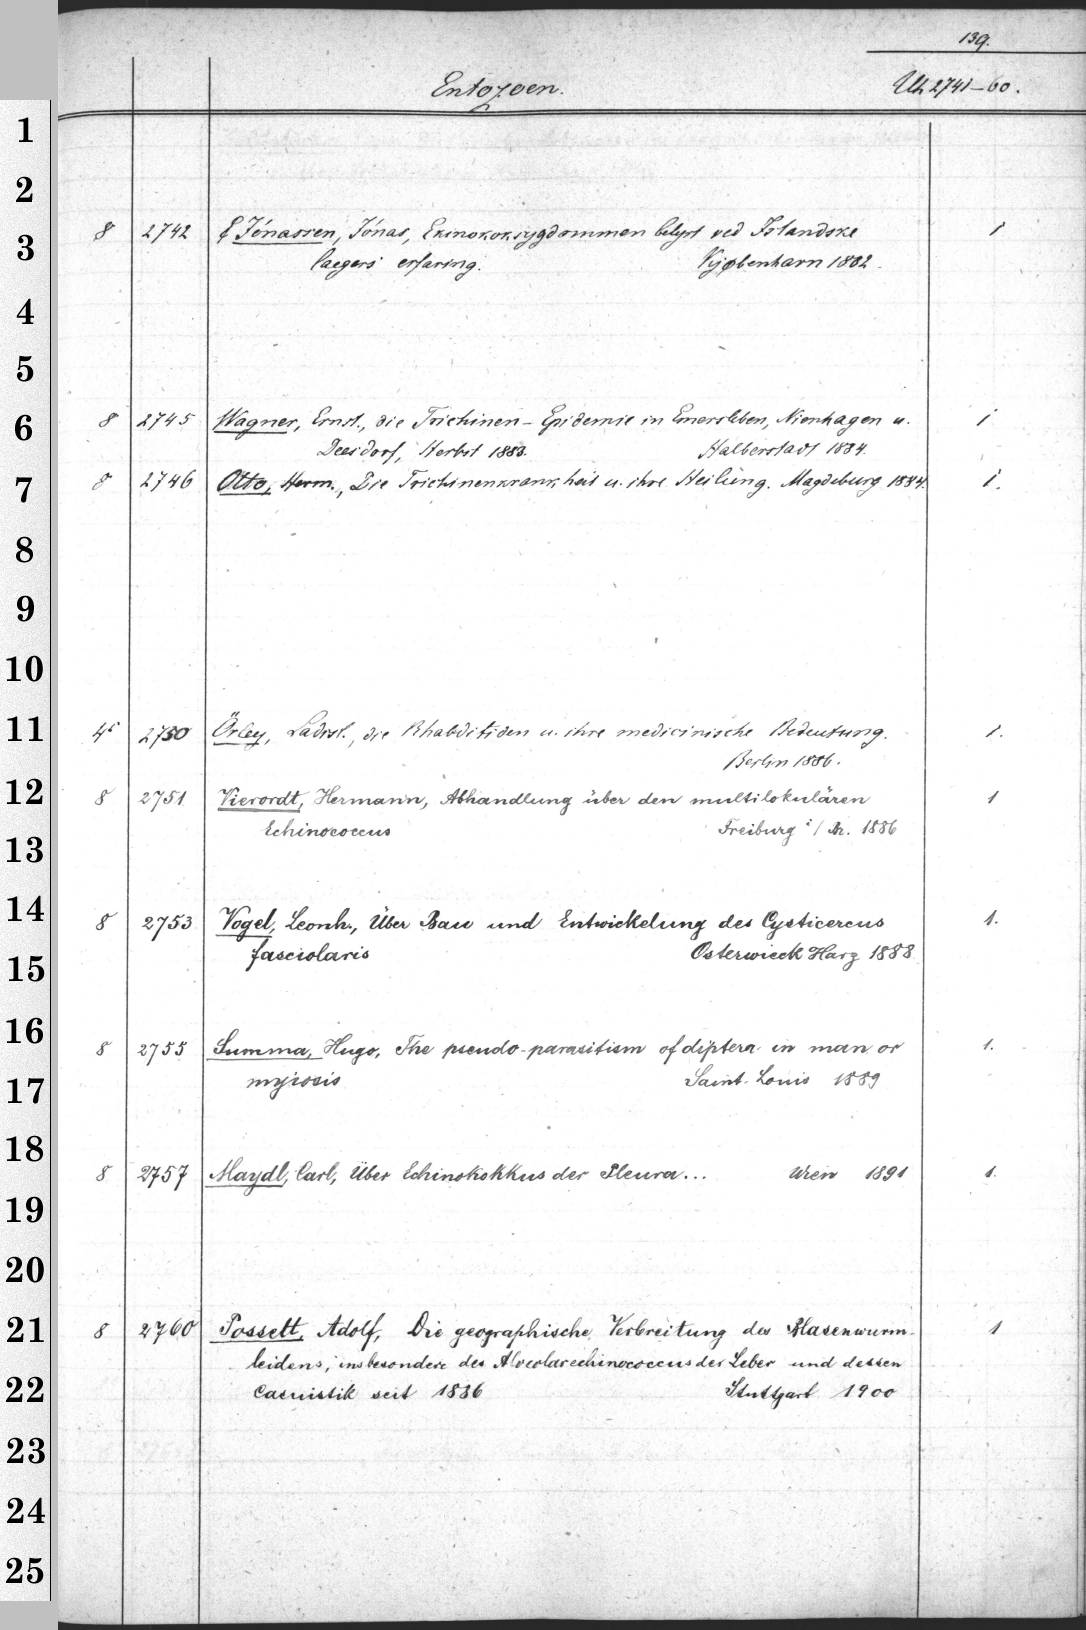 139.
Entozoen. Uh 2741-60.
1
2
8 2742 Jónassen, Jónas, Ekinokoksygdommen belyst ved Islandske 1
3
laegers erfaring. Kjøbenhavn 1882.
4
5
8 2745 Wagner, Ernst, die Trichinen-Epidemie in Emersleben, Nienhagen u. 1
6
Deesdorf, Herbst 1883. Halberstadt 1884.
7 8 2746 Otto, Herm., Die Trichinenkrankheit u. ihre Heilung. Magdeburg 1884. 1.
8
9
10
11 4° 2750 Örley, Ladisl., die Rhabditiden u. ihre medicinische Bedeutung. 1.
Berlin 1886.
12 8 2751 Vierordt, Hermann, Abhandlung über den multilokulären 1
Echinococcus Freiburg i/Br. 1886
13
14 8 2753 Vogel, Leonh., Über Bau und Entwickelung des Cysticercus 1.
fasciolaris Osterwieck Harz 1888
15
16
8 2755 Summa, Hugo, The pseudo-parasitism of diptera in man or 1.
myiosis Saint-Louis 1889
17
18
8 2757 Maydl, Carl, Über Echinokokkus der Pleura... Wien 1891 1.
19
20
21 8 2760 Posselt, Adolf, Die geographische Verbreitung des Blasenwurm- 1
leidens, insbesondere des Alveolarechinococcus der Leber und dessen
22 Casuistik seit 1886 Stuttgart 1900
23
24
25